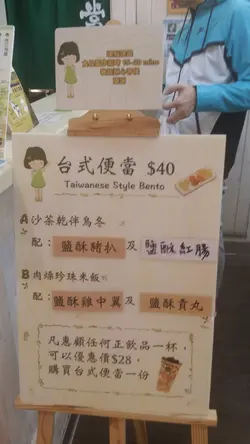 台式便當 $40
Taiwanese Style Bento
A沙茶乾伴烏冬
配：鹽酥豬扒及鹽酥紅腸
B肉燥珍珠米飯
配：鹽酥雞中翼及鹽酥貢丸
凡惠顧任何正飲品一杯，
可以優惠價$28，
購買台式便當一份